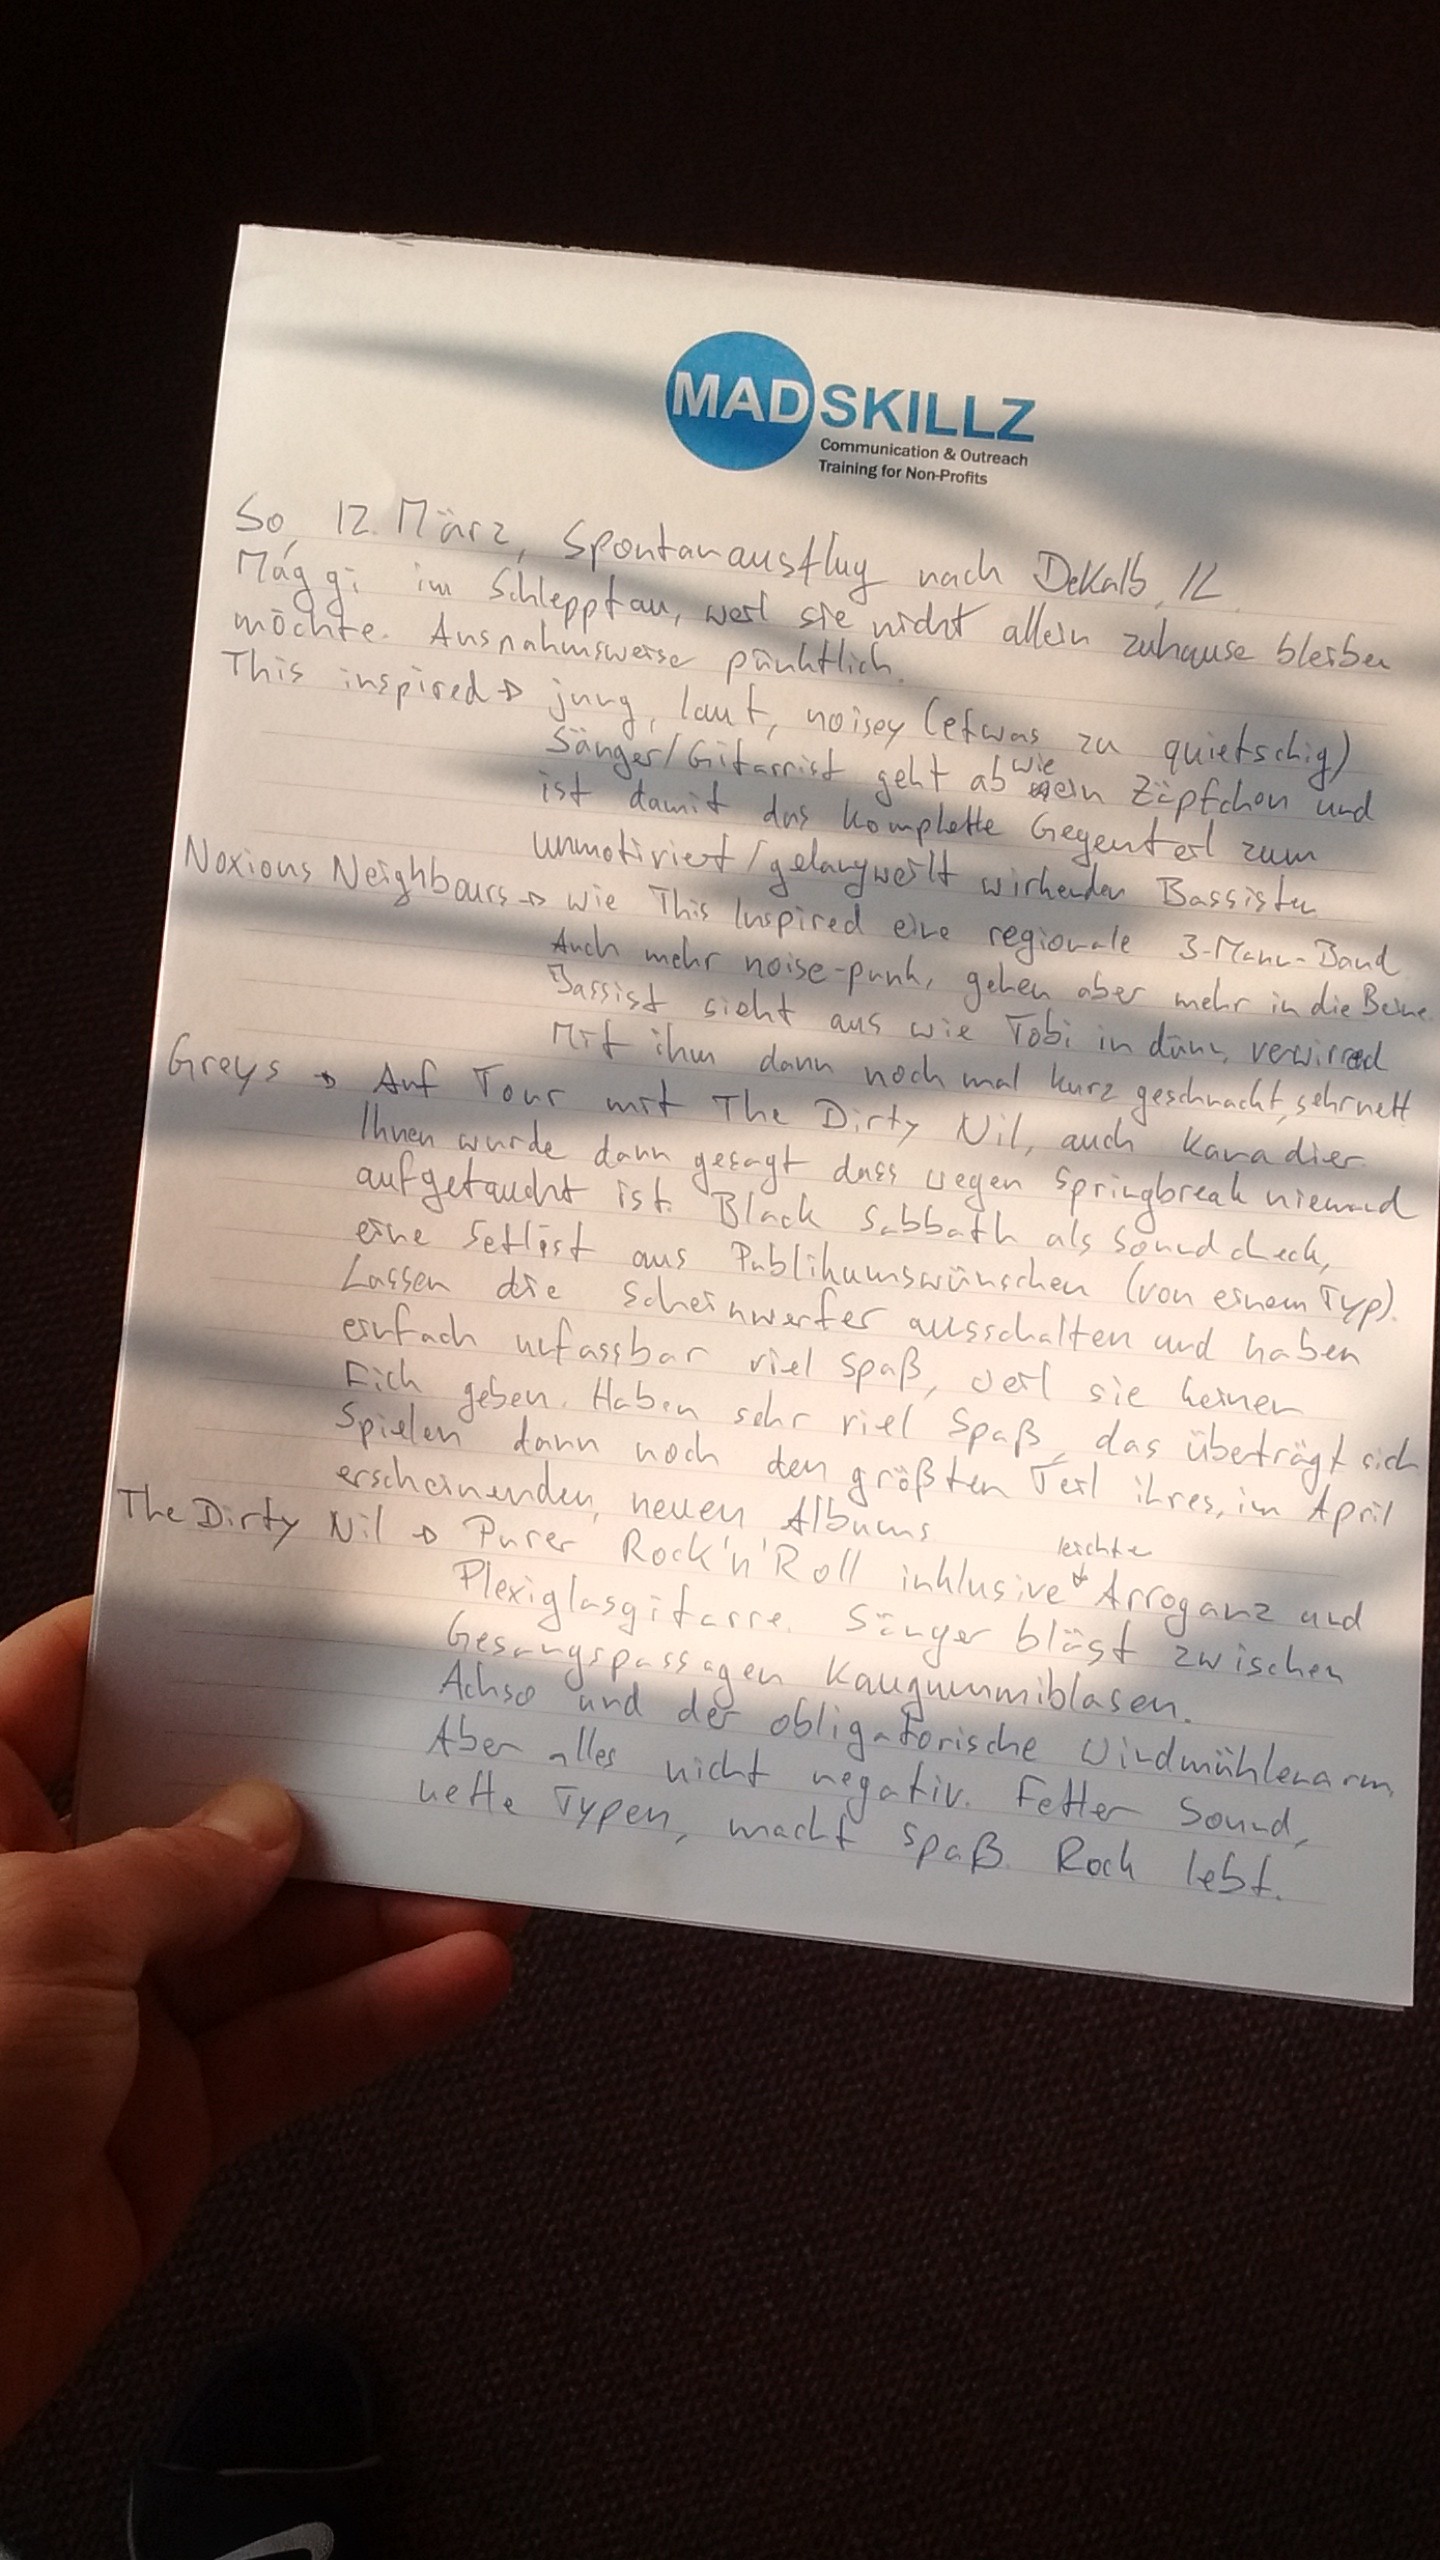 MADSKILLZ
Communication & Outreach
Training for Non-Profits
So, 12. März, Spontanausflug nach DeKalb, IL.
Mäggi im Schlepptau, weil sie nicht allein zuhause bleiben
möchte. Ausnahmsweise pünktlich.
This inspired → jung, laut, noisey (etwas zu quietschig)
Sänger/Gitarrist geht ab wie ein Zäpfchen und
ist damit das komplette Gegenteil zum
unmotiviert/gelangweilt wirkenden Bassisten
Noxious Neighbours → wie This Inspired eine regionale 3-Mann-Band
Auch mehr noise-punk, gehen aber mehr in die Beine
Bassist sieht aus wie Tobi in dünn, verwirrend
Mit ihm dann noch mal kurz geschnackt, sehr nett
Greys → Auf Tour mit The Dirty Nil, auch Kanadier.
Ihnen wurde dann gesagt dass wegen Springbreak niemand
aufgetaucht ist. Black Sabbath als Soundcheck,
eine Setlist aus Publikumswünschen (von einem Typ).
Lassen die Scheinwerfer ausschalten und haben
einfach unfassbar viel Spaß, weil sie keinen
Fick geben. Haben sehr viel Spaß, das überträgt sich
Spielen dann noch den größten Teil ihres, im April
erscheinenden, neuen Albums
The Dirty Nil → Purer Rock'n'Roll inklusive leichte Arroganz und
Plexiglasgitarre. Sänger bläst zwischen
Gesangspassagen Kaugummiblasen.
Achso und der obligatorische Windmühlenarm,
Aber alles nicht negativ. Fetter Sound,
nette Typen, macht Spaß. Rock lebt.